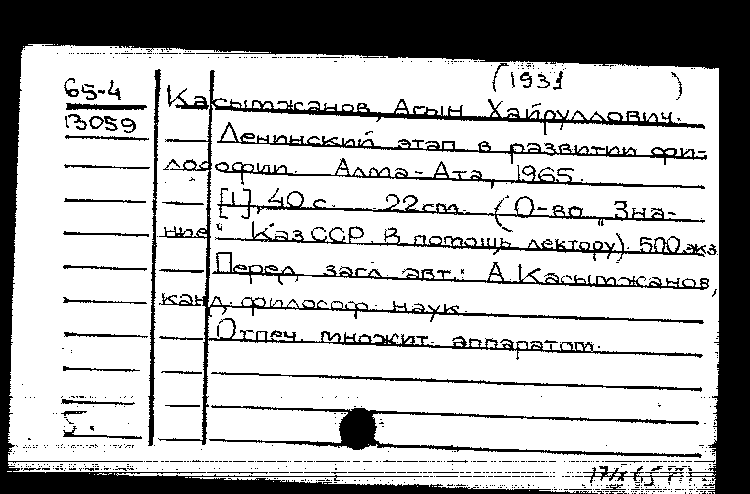 (1931 )
65-4
13059
Касымжанов, Агын Хайруллович.
Ленинский этап в развитии фи-
лософии. Алма-Ата, 1965.
[1], 40 с. 22 см. (О-во „Зна-
ние" КазССР. В помощь лектору). 500 экз.
Перед загл. авт.: А. Касымжанов,
канд. философ. наук.
Отпеч. множит. аппаратом.
5.